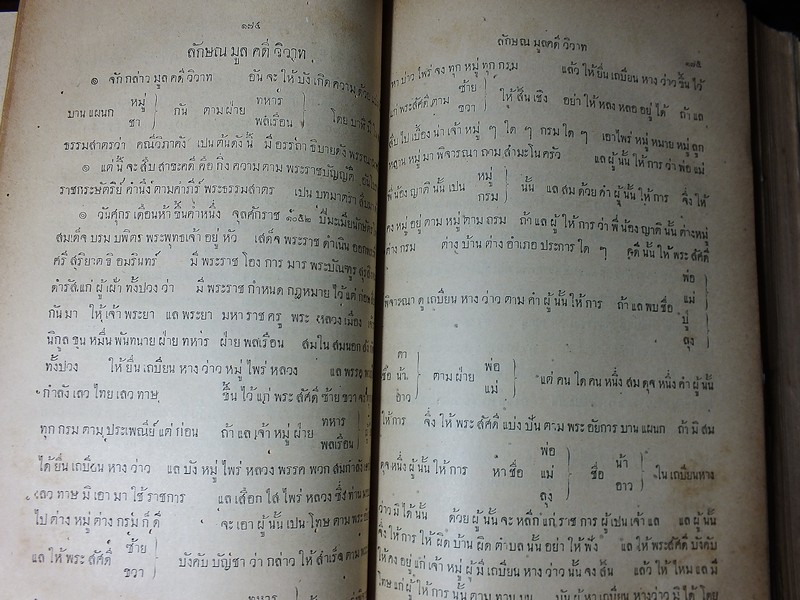 ๑๗๔
ลักษณ มูล คดี วิวาท
๑ จักกล่าว มูล คดี วิวาท อัน จะ ให้ บัง เกิด ความ ด้วย
บาน แผนก หมู่ ชา กัน ตาม ฝ่าย ทหาร พลเรือน โดย บาฬี มี ใน
ธรรมสาตรว่า คณีวิภาคัง เปน ต้น ดั่ง นี้ มี อรรถา ธิบาย ดั่ง
๑ แต่ นี้ จะ สืบ สาขะคดี คือ กิ่ง ความ ตาม พระราชบัญญัติ อัน
ราชกระษัตรีย์ คำนึง ตาม คำภีร์ พระธรรมสาตร เปน บทมาตรา สืบ
๑ วันศุกร เดือนห้า ขึ้นค่ำหนึ่ง จุลศักราช ๑๐๕๒ ปีมะเมีย
สมเด็จ บรม บพิตร พระพุทธเจ้า อยู่ หัว เสด็จ พระราช ดำเนิน ออก
ศรี สุริยาต ธิ อมรินทร์ มี พระราช โอง การ มาร พระบัณทูร
ดำรัส แก่ ผู้เฝ้า ทั้งปวง ว่า มี พระราช กำหนด กฎหมาย ไว้ แต่ ก่อน
กัน มา ให้ เจ้า พระยา แล พระยา มหา ราช ครู พระ หลวง เมือง เจ้า
นิกูล ขุน หมื่น พันทนาย ฝ่าย ทหาร ฝ่าย พลเรือน สม ใน สมนอก
ทั้งปวง ให้ ยื่น เถบียน หาง ว่าว หมู่ ไพร่ หลวง แล พรรค
กำลัง เลว ไทย เลว ทาษ ขึ้น ไว้ แก่ พระ สัศดี ซ้าย ขวา
ทุก กรม ตาม ประเพณีย์ แต่ ก่อน ถ้า แล เจ้า หมู่ ฝ่าย ทหาร พลเรือน
ได้ ยื่น เถบียน หาง ว่าว แล บัง หมู่ ไพร่ หลวง พรรค พวก สมกำลัง
เลว ทาษ มิ เอา มา ใช้ ราชการ แล เสือก ใส ไพร่ หลวง ซึ่ง ท่าน
ไป ต่าง หมู่ ต่าง กรม ก็ ดี จะ เอา ผู้ นั้น เปน โทษ ตาม พระ
แล ให้ พระ สัศดี ซ้าย ขวา บังคับ บัญชา ว่า กล่าว ให้ สำเร็จ ตาม
ทหาร
ลักษณ มูลคดี วิวาท
๑๗๕
หา บ่าว ไพร่ จง ทุก หมู่ ทุก กรม แล้ว ให้ ยื่น เถบียน หาง ว่าว ขึ้น ไว้
แก่ พระสัศดี ตาม ซ้าย ขวา ให้ สิ้น เชิง อย่า ให้ หลง หลอ อยู่ ได้ ถ้า แล
สืบ ไป เบื้อง น่า เจ้า หมู่ ๆ ใด ๆ กรม ใด ๆ เอา ไพร่ หมู่ หมาย หมู่ ลูก
หลาน หมู่ มา พิจารณา ถาม สำมะโน ครัว แล ผู้ นั้น ให้ การ ว่า พ่อ แม่
พี่ น้อง ญาติ นั้น เปน หมู่ กรม นั้น แล สม ด้วย คำ ผู้ นั้น ให้ การ จึ่ง ให้
คง หมู่ อยู่ ตาม หมู่ ตาม กรม ถ้า แล ผู้ ให้ การ ว่า พี่ น้อง ญาติ นั้น ต่าง หมู่
ต่าง กรม ต่าง บ้าน ต่าง อำเภอ ประการ ใด ๆ ก็ดี นั้น ให้ พระ สัศดี
พิจารณา ดู เถบียน หาง ว่าว ตาม คำ ผู้ นั้น ให้ การ ถ้า แล พบ ชื่อ พ่อ แม่ ปู่ ลุง
ชื่อ ตา น้า อาว ตาม ฝ่าย พ่อ แม่ แต่ คน ใด คน หนึ่ง สม ดุจ หนึ่ง คำ ผู้ นั้น
ให้ การ จึ่ง ให้ พระ สัศดี แบ่ง ปัน ตาม พระ อัยการ บาน แผนก ถ้า มิ สม
ดุจ หนึ่ง ผู้ นั้น ให้ การ หา ชื่อ พ่อ แม่ ลุง ชื่อ น้า อาว ใน เถบียน หาง
ว่าว มิ ได้ นั้น ด้วย ผู้ นั้น จะ หลีก แก่ ราช การ ผู้ เปน เจ้า แล แล ผู้ นั้น
จึ่ง ให้ การ ให้ ผิด บ้าน ผิด ตำบล นั้น อย่า ให้ ฟัง แล ให้ พระสัศดี บังคับ
ให้ คง อยู่ แก่ เจ้า หมู่ ผู้ มี เถบียน หาง ว่าว นั้น จง สิ้น แล้ว ให้ ไหม แล มี
โทษ แก่ ผู้ ให้ การ นั้น ตาม